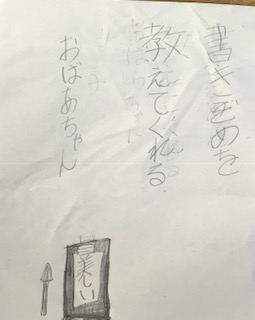 書きぞめを
教えてくれる
おばあちゃん
美しい